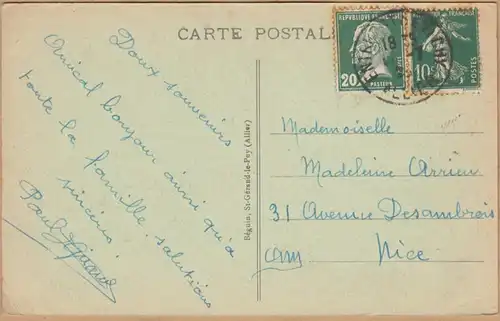 CARTE POSTALE
REPUBLIQUE FRANÇAISE
20c
PASTEUR
FRANÇAISE
10c
POSTES
18
Doux souvenirs
Amical bonjour ainsi qu'à
toute la famille. salutions
sincères
Paul
Béguin, St-Gérand-le-Puy (Allier)
Mademoiselle
Madeleine Arrieu
31 Avenue Desambrois
Nice